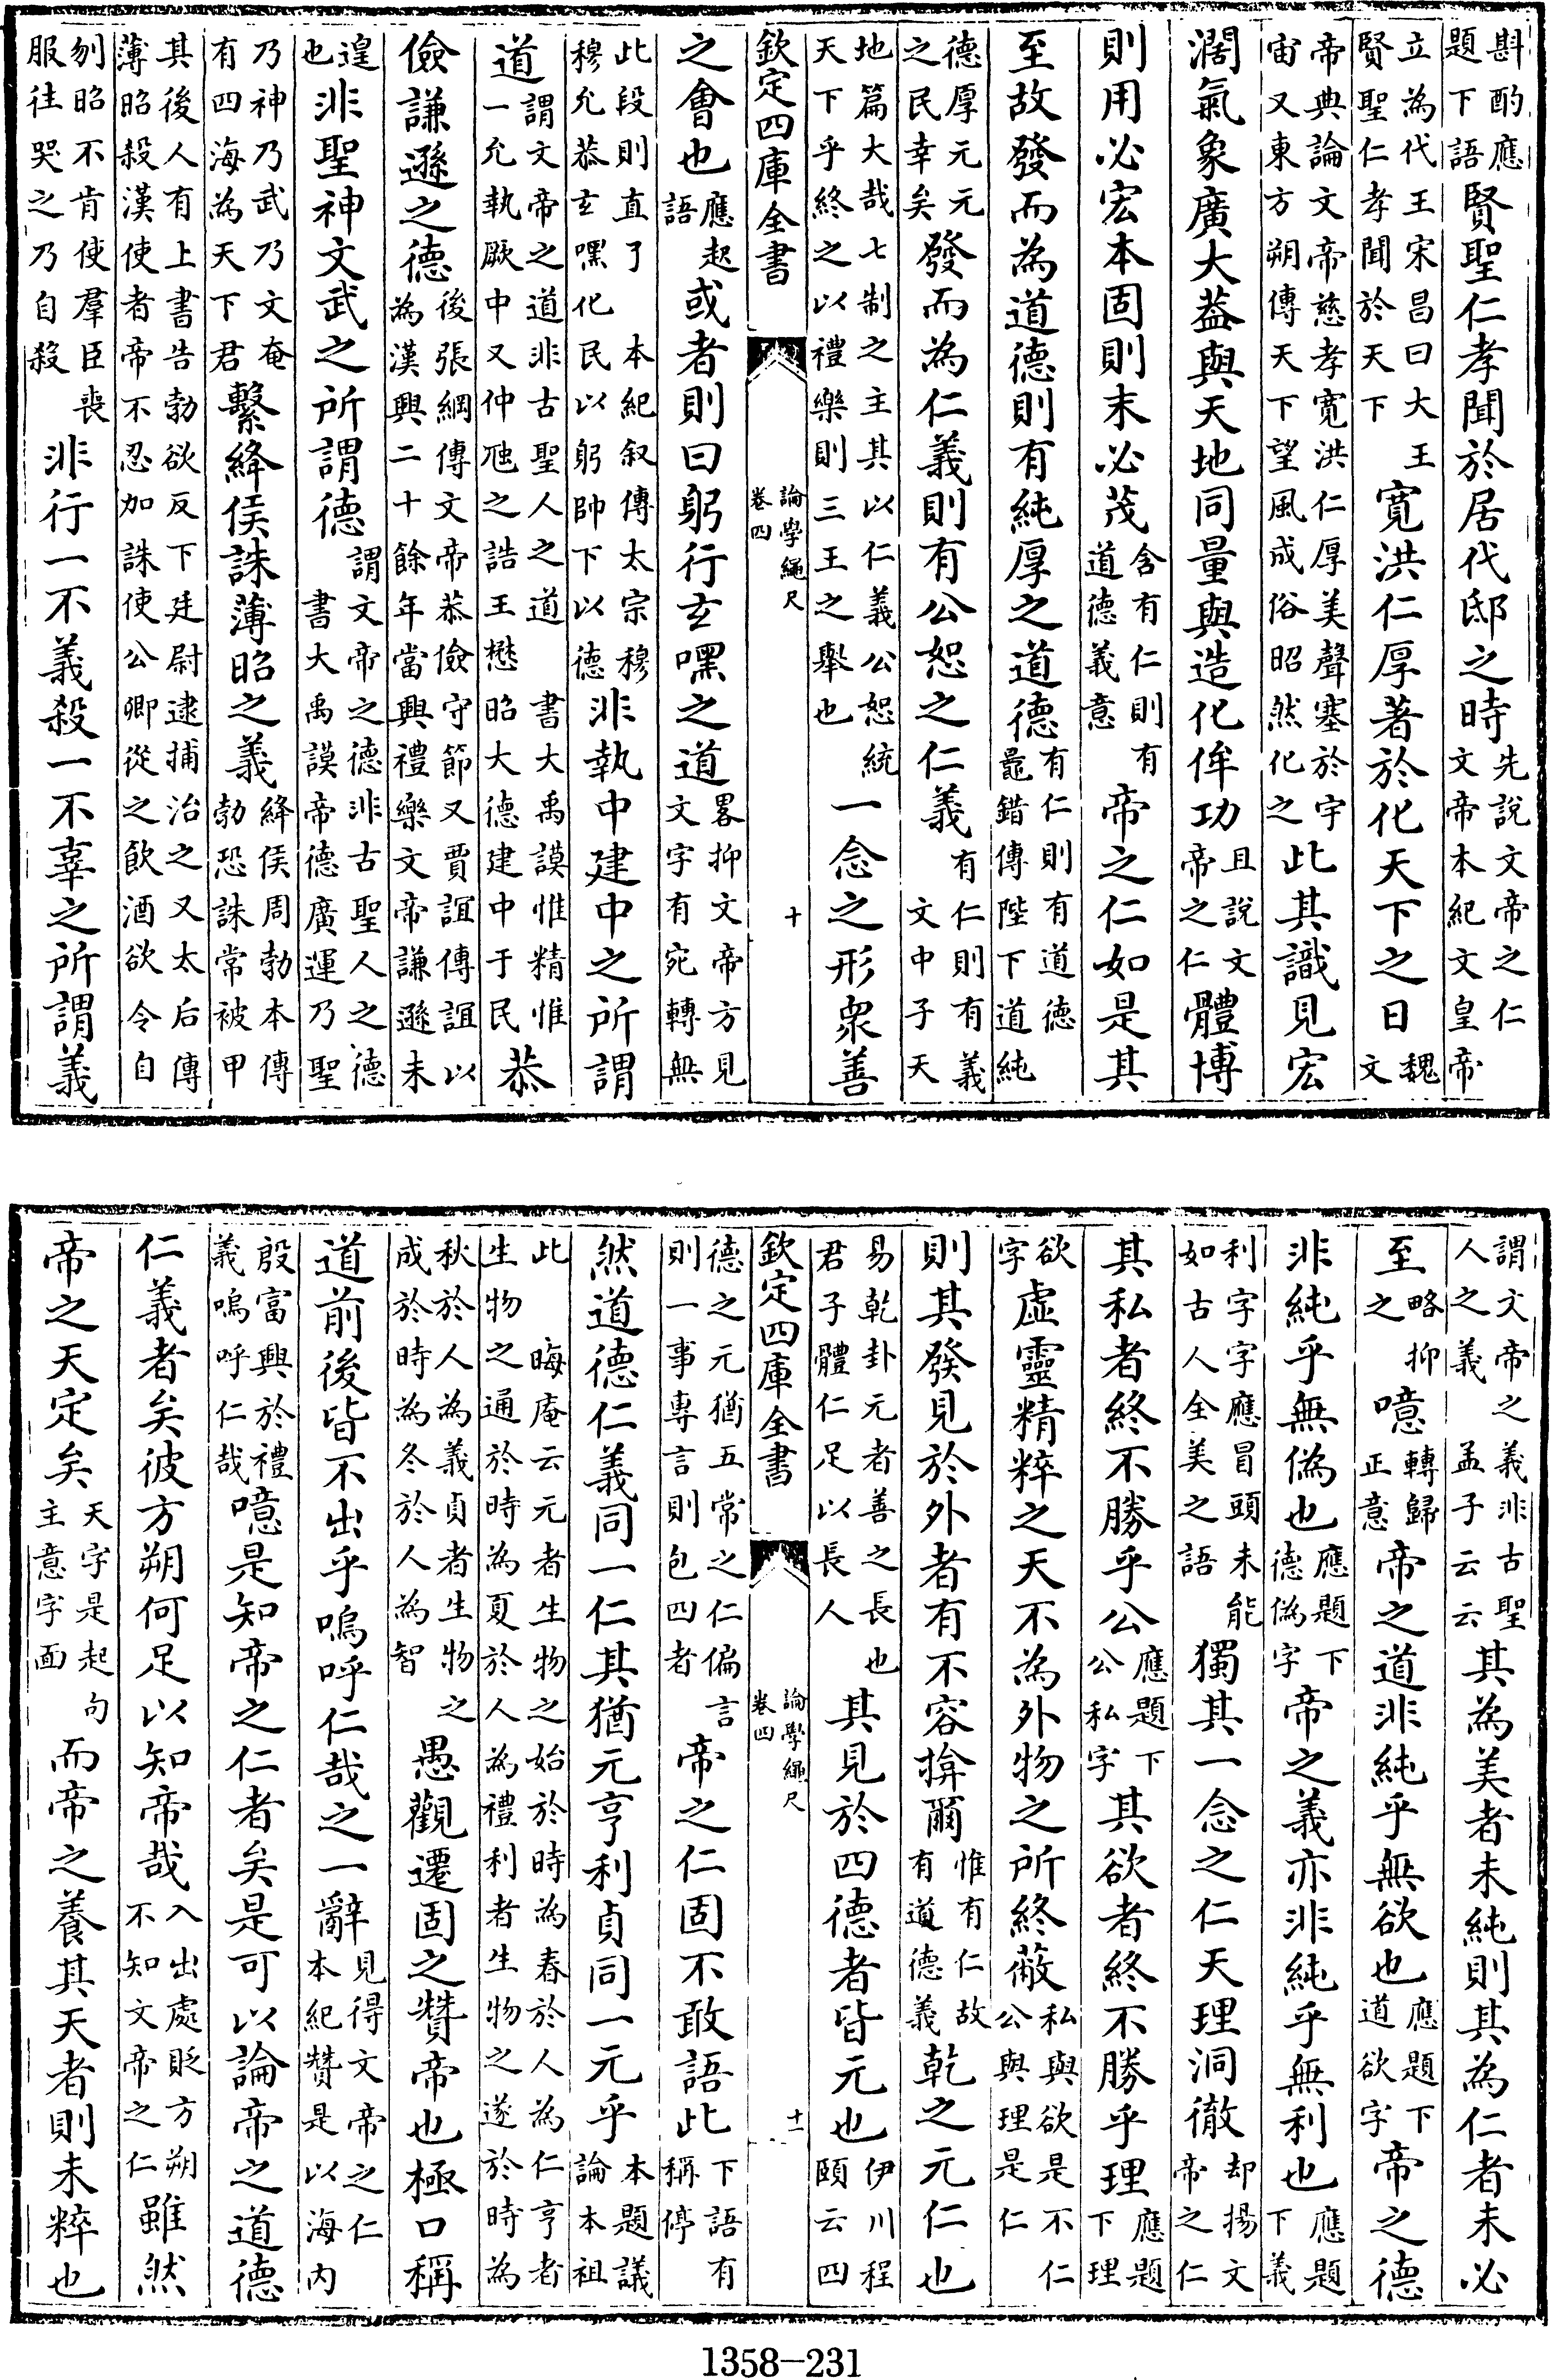 斟酌應題下語賢聖仁孝聞於居代邸之時先說文帝之仁文帝本紀文皇帝
立為代王宋昌曰大王賢聖仁孝聞於天下寛洪仁厚著於化天下之日魏文
帝典論文帝慈孝寛洪仁厚美聲塞於宇宙又東方朔傳天下望風成俗昭然化之此其識見宏
濶氣象廣大葢與天地同量與造化侔功且說文帝之仁體博
則用必宏本固則末必茂含有仁則有道德義意帝之仁如是其
至故發而為道德則有純厚之道德有仁則有道德鼂錯傳陛下道純
德厚元元之民幸矣發而為仁義則有公恕之仁義有仁則有義文中子天
地篇大哉七制之主其以仁義公恕統天下乎終之以禮樂則三王之舉也一念之形衆善
欽定四庫全書 論學繩尺 卷四 十
之會也應起語或者則曰躬行玄嘿之道畧抑文帝方見文字有宛轉無
此段則直了 本紀叙傳太宗穆穆允恭玄嘿化民以躬帥下以德非執中建中之所謂
道謂文帝之道非古聖人之道 書大禹謨惟精惟一允執厥中又仲虺之誥王懋昭大德建中于民恭
儉謙遜之德後張綱傳文帝恭儉守節又賈誼傳誼以為漢興二十餘年當興禮樂文帝謙遜未
遑也非聖神文武之所謂德謂文帝之德非古聖人之德書大禹謨帝德廣運乃聖
乃神乃武乃文奄有四海為天下君繫絳侯誅薄昭之義絳侯周勃本傳勃恐誅常被甲
其後人有上書告勃欲反下廷尉逮捕治之又太后傳薄昭殺漢使者帝不忍加誅使公卿從之飲酒欲令自
刎昭不肯使羣臣喪服往哭之乃自殺非行一不義殺一不辜之所謂義
謂文帝之義非古聖人之義 孟子云云其為美者未純則其為仁者未必
至略抑之噫轉歸正意帝之道非純乎無欲也應題下道欲字帝之德
非純乎無偽也應題下德偽字帝之義亦非純乎無利也應題下義
利字字應冒頭未能如古人全美之語獨其一念之仁天理洞徹却揚文帝之仁
其私者終不勝乎公應題下公私字其欲者終不勝乎理應題下理
欲字虛靈精粹之天不為外物之所終蔽私與欲是不仁公與理是仁
則其發見於外者有不容揜爾惟有仁故有道德義乾之元仁也
易乾卦元者善之長也君子體仁足以長人其見於四德者皆元也伊川程頤云四
欽定四庫全書 論學繩尺 卷四 十一
德之元猶五常之仁偏言則一事專言則包四者帝之仁固不敢語此下語有稱停
然道德仁義同一仁其猶元亨利貞同一元乎本題議論本祖
此 晦庵云元者生物之始於時為春於人為仁亨者生物之通於時為夏於人為禮利者生物之遂於時為
秋於人為義貞者生物之成於時為冬於人為智愚觀遷固之贊帝也極口稱
道前後皆不出乎嗚呼仁哉之一辭見得文帝之仁本紀贊是以海内
殷富興於禮義嗚呼仁哉噫是知帝之仁者矣是可以論帝之道德
仁義者矣彼方朔何足以知帝哉入出處貶方朔不知文帝之仁雖然
帝之天定矣天字是起句主意字面而帝之養其天者則未粹也
1358-231